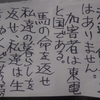 はありません。
加害者は東電
と国である。
馬の命を返せ
私達の暮しを
返せ私達は生